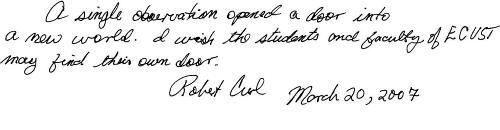 A single observation opened a door into
a new world. I wish the students and faculty of ECUST
may find their own door.
Robert Curl March 20, 2007